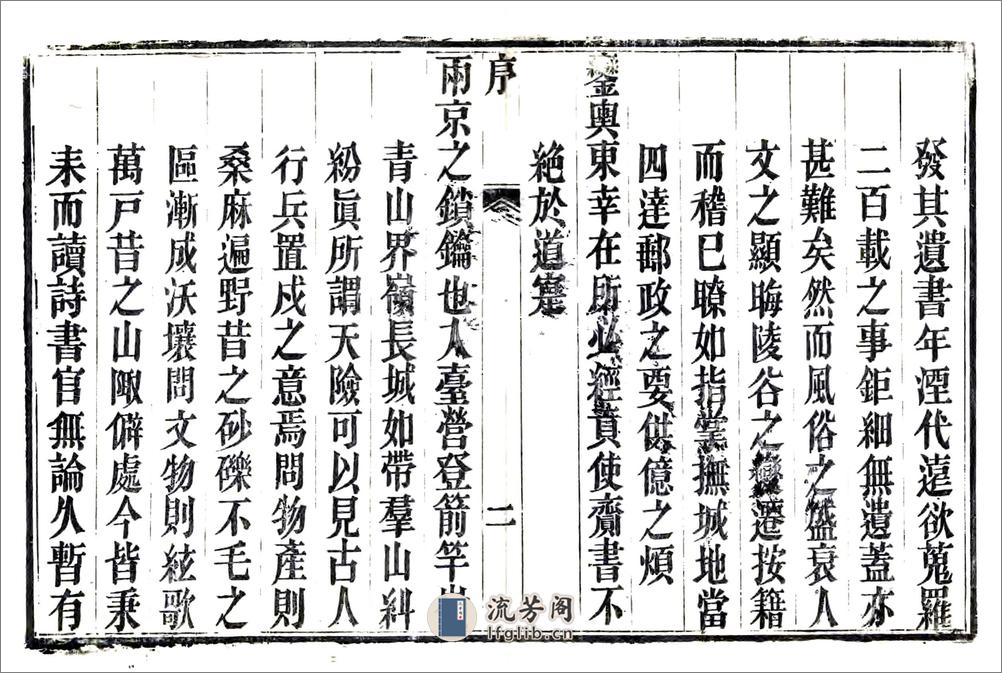 發其遺書年湮代遠欲蒐羅
二百載之事鉅細無遺蓋亦
甚難矣然而風俗之盛衰人
文之顯晦陵谷之變遷按籍
而稽已瞭如指掌撫城地當
四達郵政之要供億之煩
鑾輿東幸在所必經貢使齎書不
絶於道寔
序
二
兩京之鎖鑰也人臺營登箭竿
青山界嶺長城如帶羣山糾
紛眞所謂天險可以見古人
行兵置戍之意焉問物產則
桑麻遍野昔之砂礫不毛之
區漸成沃壤問文物則絃歌
萬戸昔之山陬僻處今皆秉
耒而讀詩書官無論久暫有
流芳阁
lfglib.cn